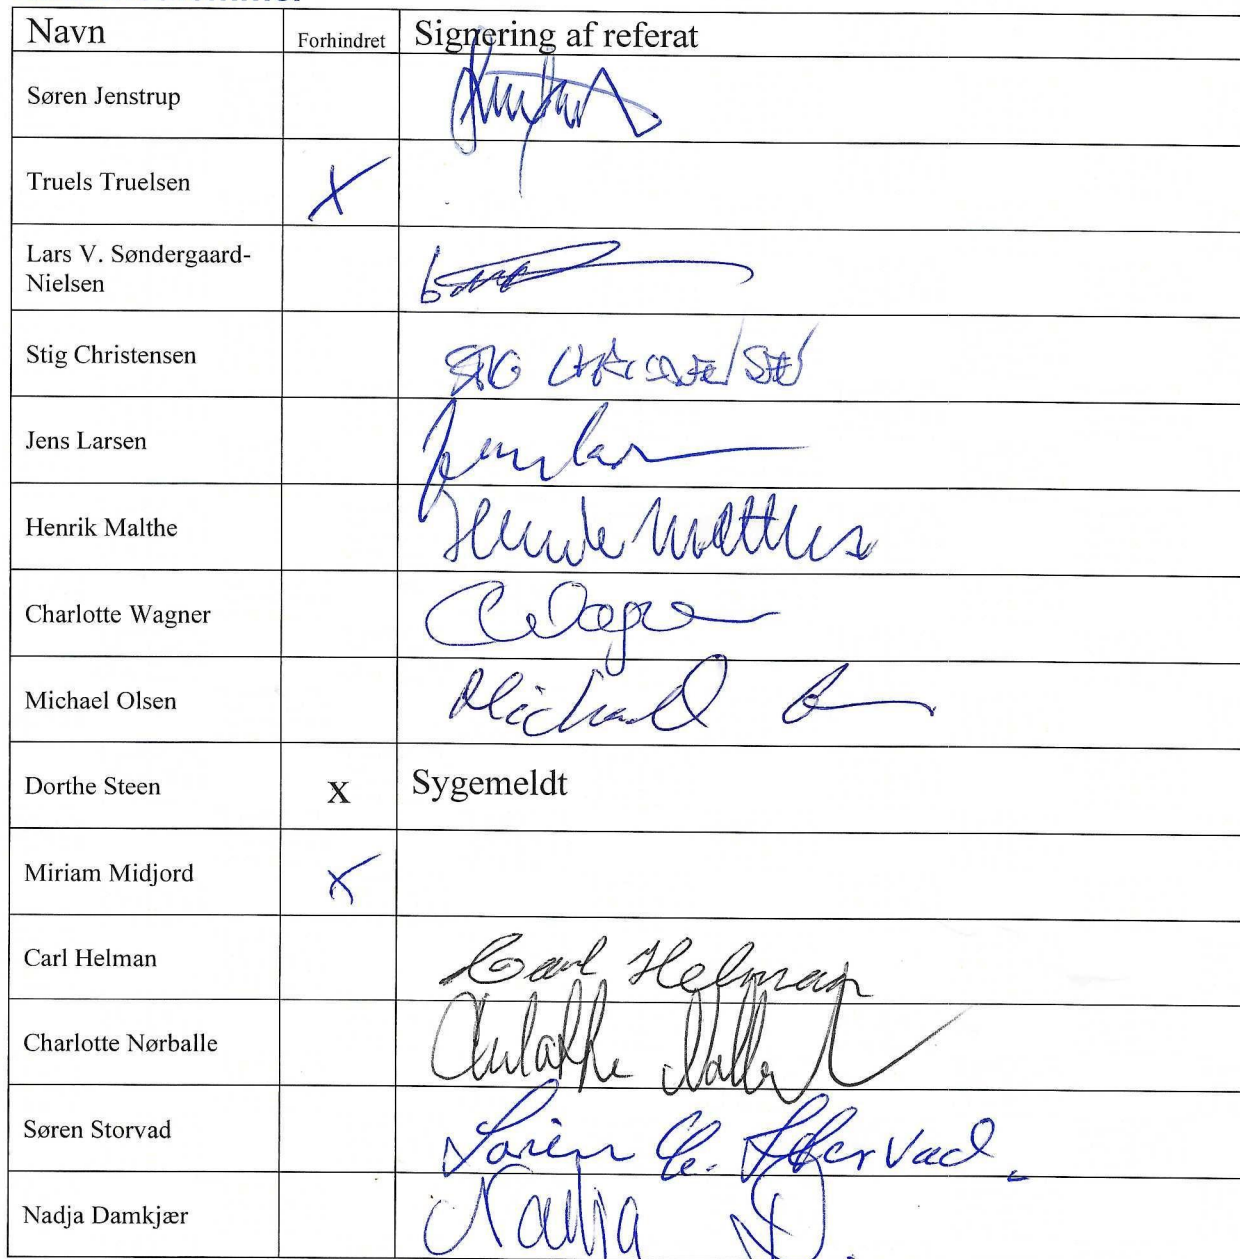 Navn Forhindret Signering af referat
Søren Jenstrup
Truels Truelsen X
Lars V. Søndergaard-
Nielsen
Stig Christensen STIG CHRISTENSEN
Jens Larsen Jens Larsen
Henrik Malthe Henrik Malthe
Charlotte Wagner C Wagner
Michael Olsen Michael
Dorthe Steen X Sygemeldt
Miriam Midjord X
Carl Helman Carl Helman
Charlotte Nørballe Charlotte
Søren Storvad Søren
Nadja Damkjær Nadja D.